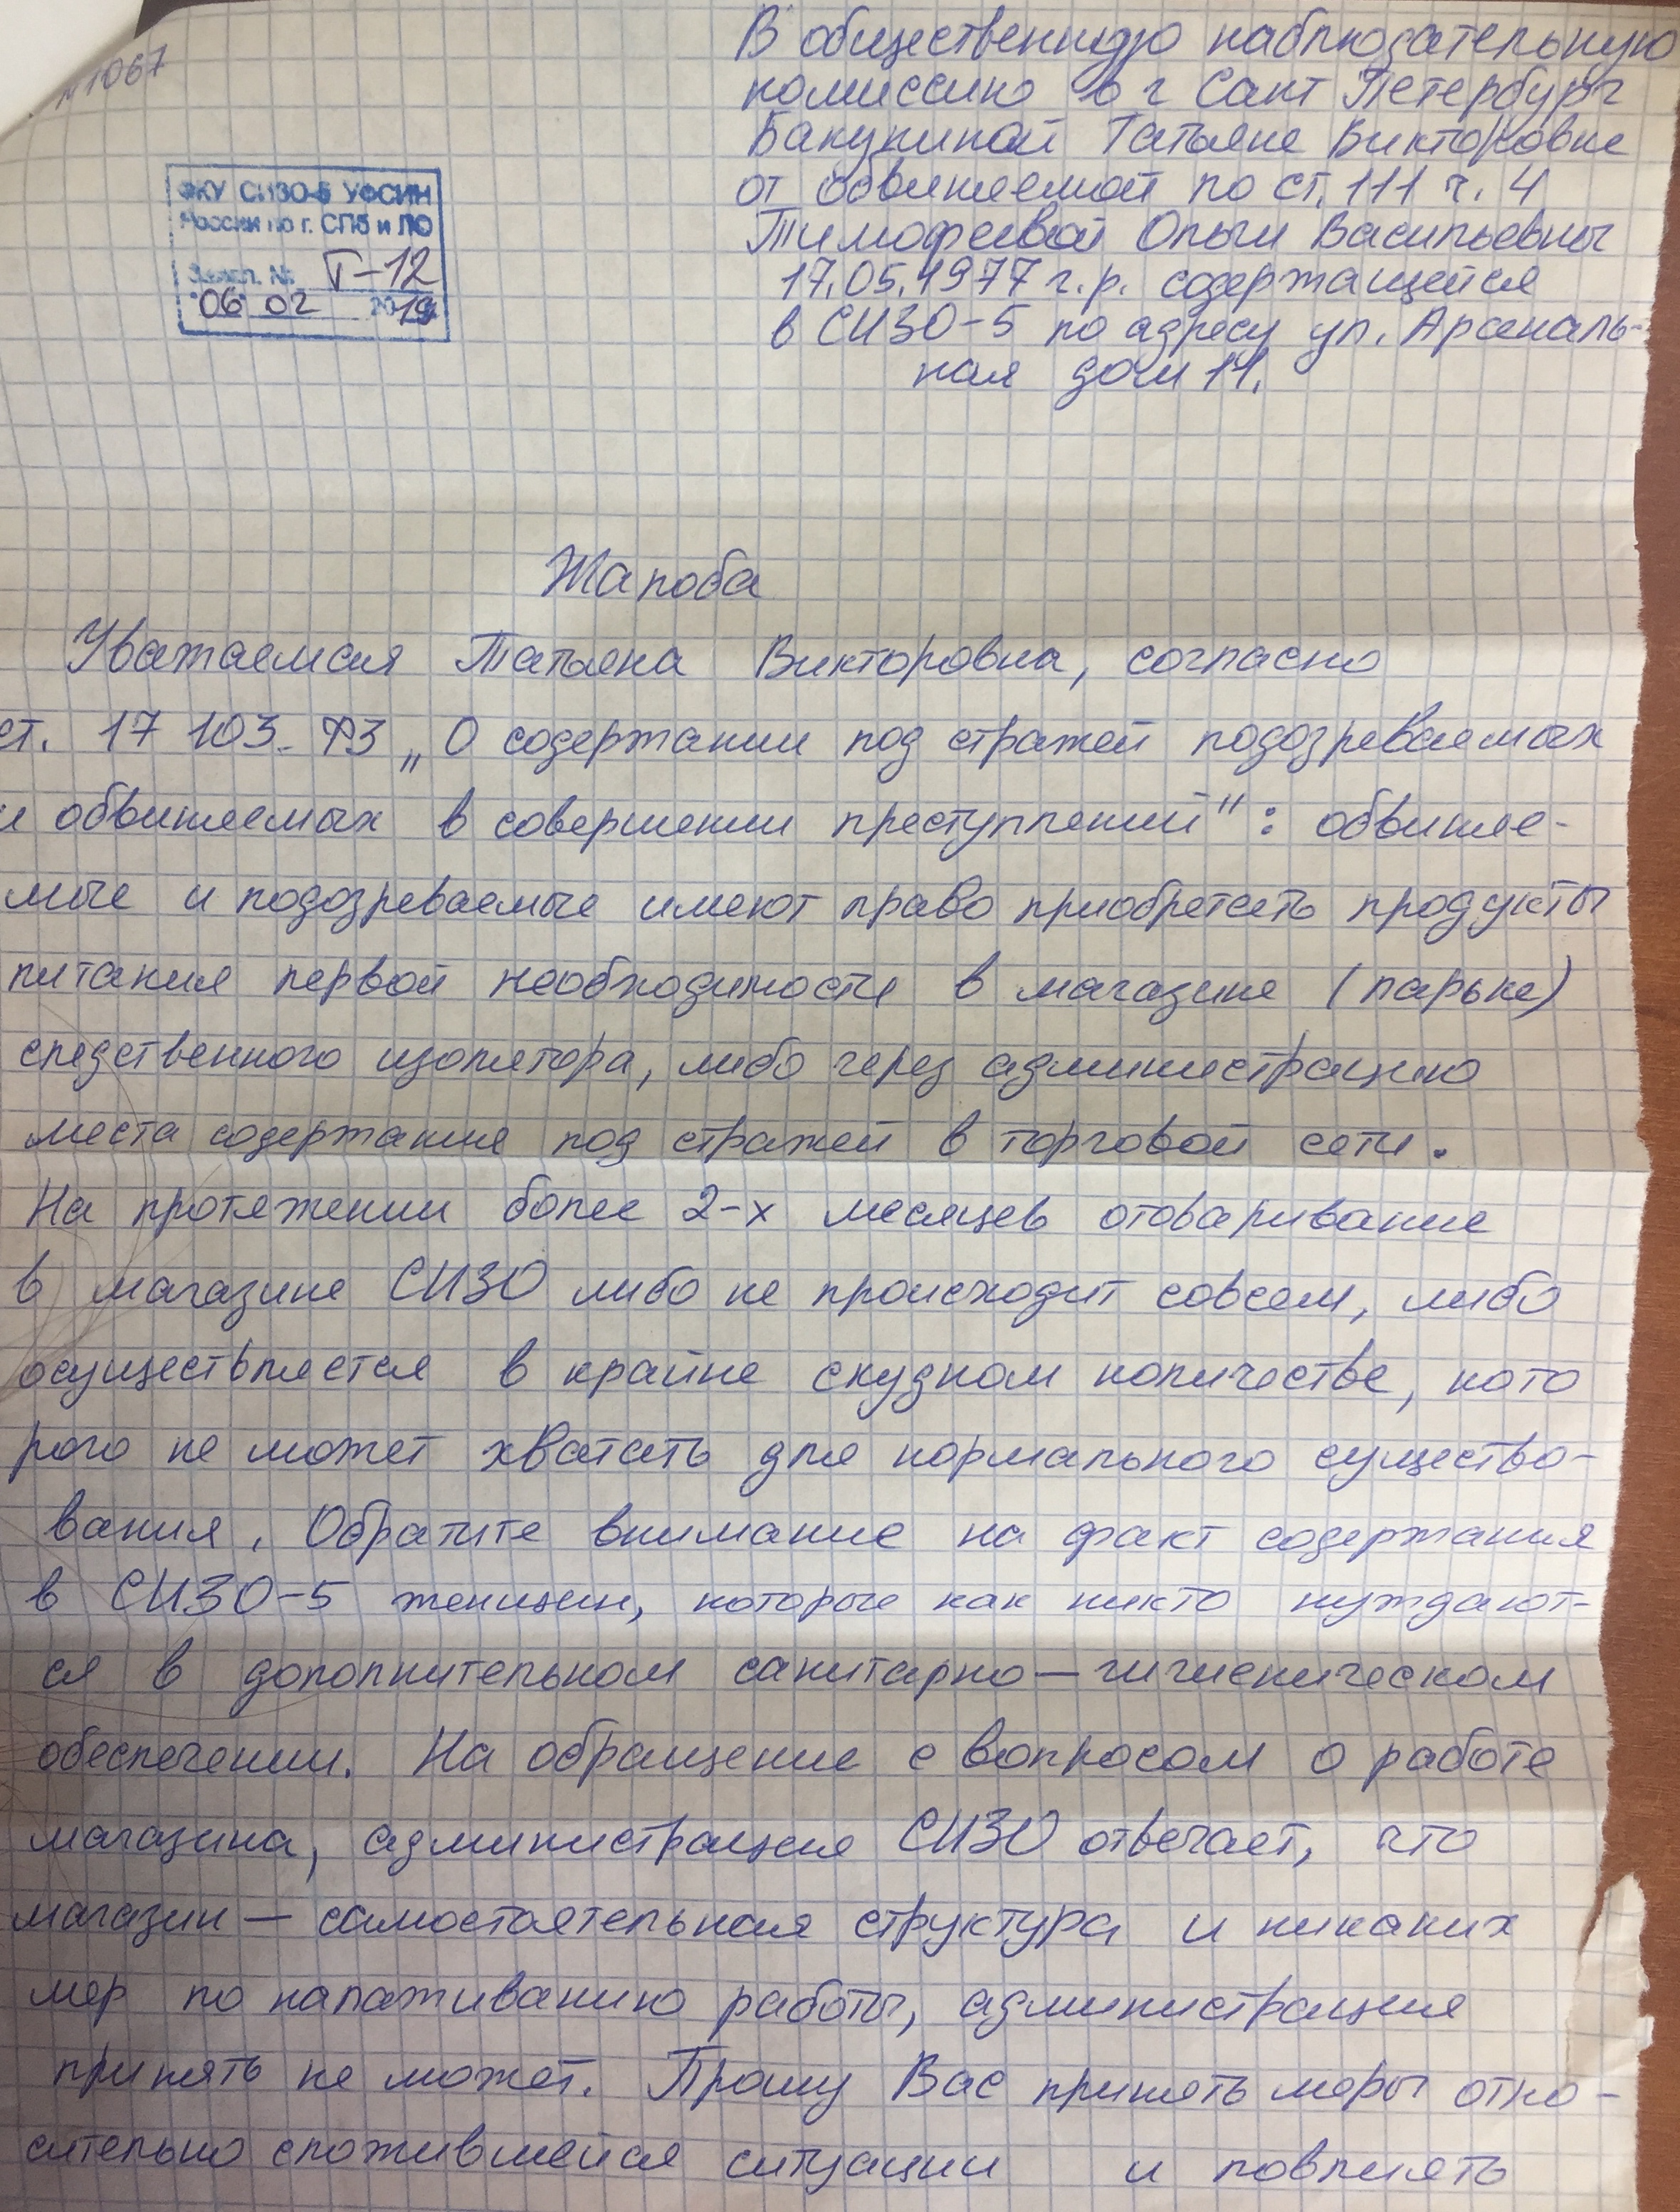 №1067
В общественную наблюдательную
комиссию в г Санкт Петербург
Бакулиной Татьяне Викторовне
от обвиняемой по ст. 111 ч. 4
Тимофеевой Ольги Васильевны
17.05.1977 г.р. содержащейся
в СИЗО-5 по адресу ул. Арсеналь-
ная дом 11.
ФКУ СИЗО-5 УФСИН
России по г. СПб и ЛО
№ Т-12
06 02 2019
Жалоба
Уважаемая Татьяна Викторовна, согласно
ст. 17 103-ФЗ „О содержании под стражей подозреваемых
и обвиняемых в совершении преступлений": обвиняе-
мые и подозреваемые имеют право приобретать продукты
питания первой необходимости в магазине (ларьке)
следственного изолятора, либо через администрацию
места содержания под стражей в торговой сети.
На протяжении более 2-х месяцев отоваривание
в магазине СИЗО либо не происходит совсем, либо
осуществляется в крайне скудном количестве, кото
рого не может хватать для нормального существо-
вания. Обратите внимание на факт содержания
в СИЗО-5 женщин, которые как никто нуждают-
ся в дополнительном санитарно-гигиеническом
обеспечении. На обращение с вопросом о работе
магазина, администрация СИЗО отвечает, что
магазин - самостоятельная структура и никаких
мер по налаживанию работы, администрация
принять не может. Прошу Вас принять меры отно-
сительно сложившейся ситуации и повлиять